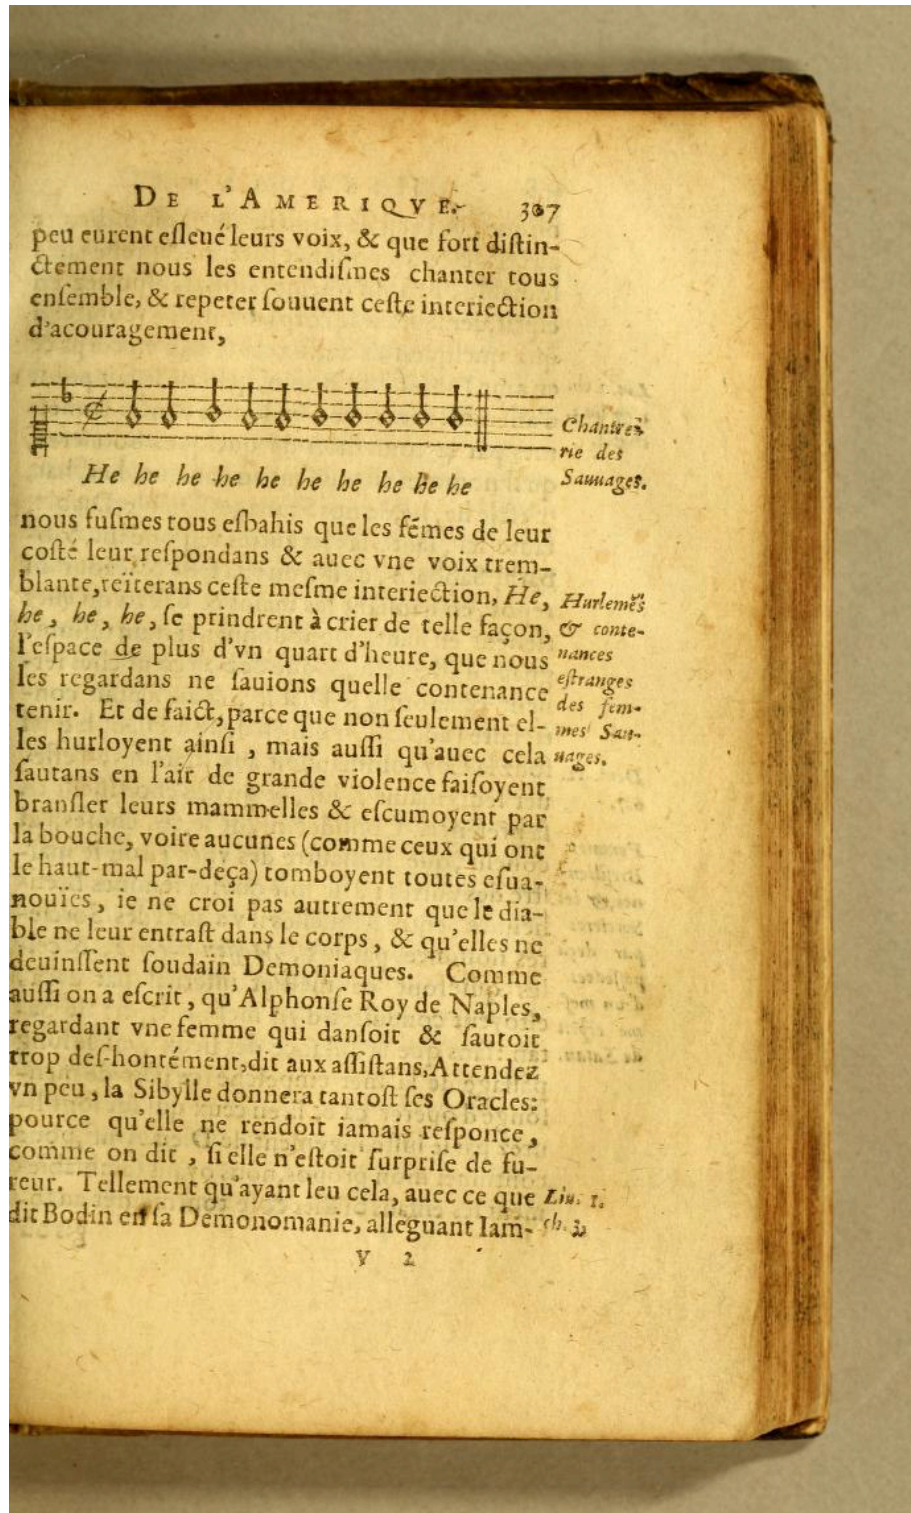 DE L'AMERIQVE. 307
peu eurent eſleué leurs voix, & que fort diſtin-
ctement nous les entendiſmes chanter tous
enſemble, & repeter ſouuent ceſte interiection
d'acouragement,
Chantre-
rie des
Sauuages.
He he he he he he he he he he
nous fuſmes tous eſbahis que les fẽmes de leur
coſté leur reſpondans & auec vne voix trem-
blante, reïterans ceſte meſme interiection, He,
he, he, he, ſe prindrent à crier de telle façon,
l'eſpace de plus d'vn quart d'heure, que nous
les regardans ne ſauions quelle contenance
tenir. Et de faict, parce que non ſeulement el-
les hurloyent ainſi, mais auſſi qu'auec cela
ſautans en l'air de grande violence faiſoyent
branſler leurs mammelles & eſcumoyent par
la bouche, voire aucunes (comme ceux qui ont
le haut-mal par-deça) tomboyent toutes eſua-
nouïes, ie ne croi pas autrement que le dia-
ble ne leur entraſt dans le corps, & qu'elles ne
deuinſſent ſoudain Demoniaques. Comme
auſſi on a eſcrit, qu'Alphonſe Roy de Naples,
regardant vne femme qui danſoit & ſautoit
trop deſ-hontément, dit aux aſſiſtans, Attendez
vn peu, la Sibylle donnera tantoſt ſes Oracles:
pource qu'elle ne rendoit iamais reſponce,
comme on dit, ſi elle n'eſtoit ſurpriſe de fu-
reur. Tellement qu'ayant leu cela, auec ce que
dit Bodin en ſa Demonomanie, alleguant Iam-
Hurlemẽs
& conte-
nances
eſtranges
des fem-
mes Sau-
uages.
Liu. 1.
ch. 3.
V 2